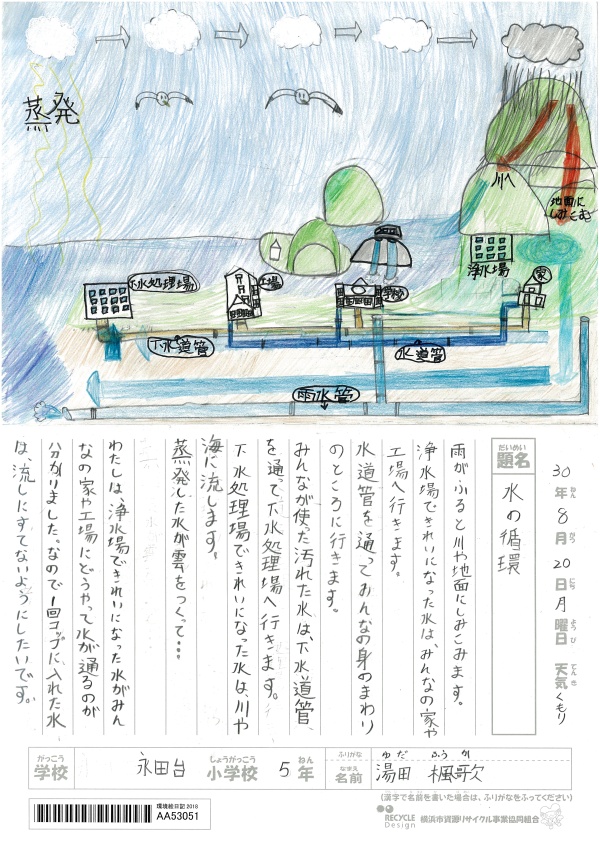 蒸発
地面に
しみこむ
浄水場
家
下水処理場
工場
学校
下水道管
水道管
雨水管
だいめい
題名
水の循環
30年8月20日月曜日 天気くもり
ねん がつ にち ようび てんき
雨がふると川や地面にしみこみます。
浄水場できれいになった水は、みんなの家や
工場へ行きます。
水道管を通ってみんなの身のまわり
のところに行きます。
みんなが使った汚れた水は、下水道管、
を通って下水処理場へ行きます。
下水処理場できれいになった水は川や
海に流します。
蒸発した水が雲をつくって・・・・
わたしは、浄水場できれいになった水がみん
なの家や工場にどうやって水が通るのが
分かりました。なので1回コップに入れた水
は、流しにすてないようにしたいです。
がっこう
学校
永田台
しょうがっこう
小学校
5
ねん
年
ふりがな
ゆだ ふうか
なまえ
名前
湯田 楓歌
(漢字で名前を書いた場合は、ふりがなをふってください)
環境絵日記2018
AA53051
RECYCLE
Design
横浜市資源リサイクル事業協同組合